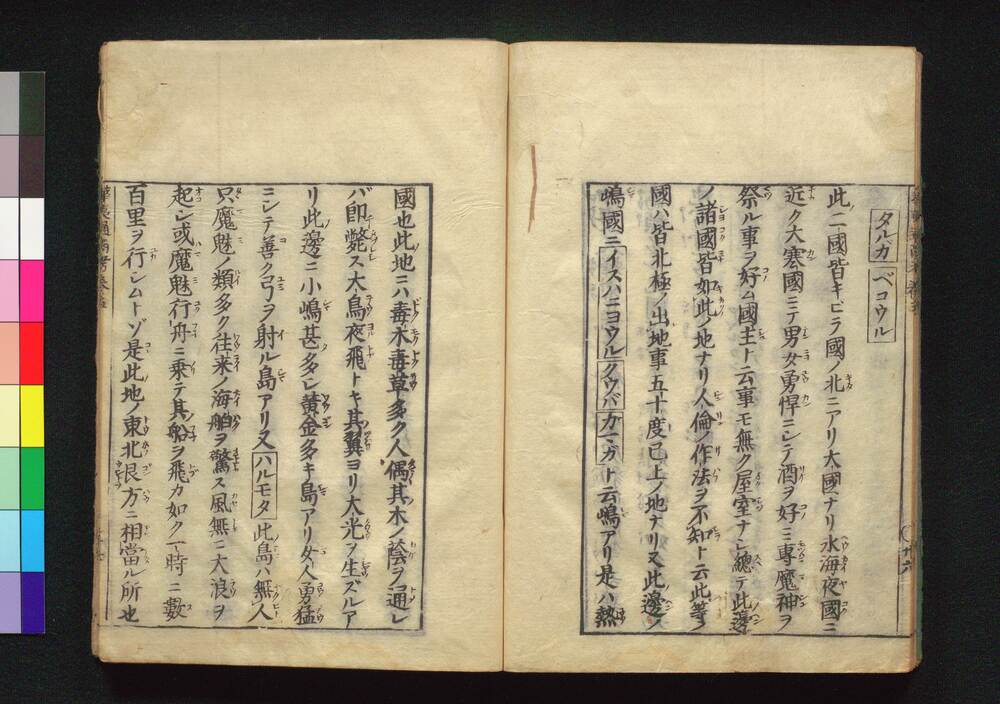 タルカ ベコウル
此ノ二國皆キビラ國ノ北ニアリ大國ナリ氷海夜國ニ
近ク大寒國ニテ男女勇悍ニシテ酒ヲ好ミ専魔神ヲ
祭ル事ヲ好ム國主ト云事モ無ク屋室ナシ總テ此邊
ノ諸國皆如此ノ地ナリ人倫ノ作法ヲ不知ト云此等ノ
國ハ皆北極ノ出地事五十度已上ノ地ナリ又此邊ノ
嶋國ニイスハニヨウル クウバ カマガト云嶋アリ是ハ熱
國也此地ニハ毒木毒草多ク人偶其木ノ蔭ヲ通レ
バ即斃ス大鳥夜飛トキ其翼ヨリ大光ヲ生ズルア
リ此邊ニ小嶋甚多シ黄金多キ島アリ女人勇猛
ニシテ善ク弓ヲ射ル島アリ又ハルモタ此島ハ無人
只魔魅ノ類多ク往来ノ海舶ヲ驚ス風無ニ大浪ヲ
起シ或魔魅行舟ニ乗テ其船ヲ飛カ如ク一時ニ數
百里ヲ行シムトゾ是此地ノ東北艮方ニ相當ル所也